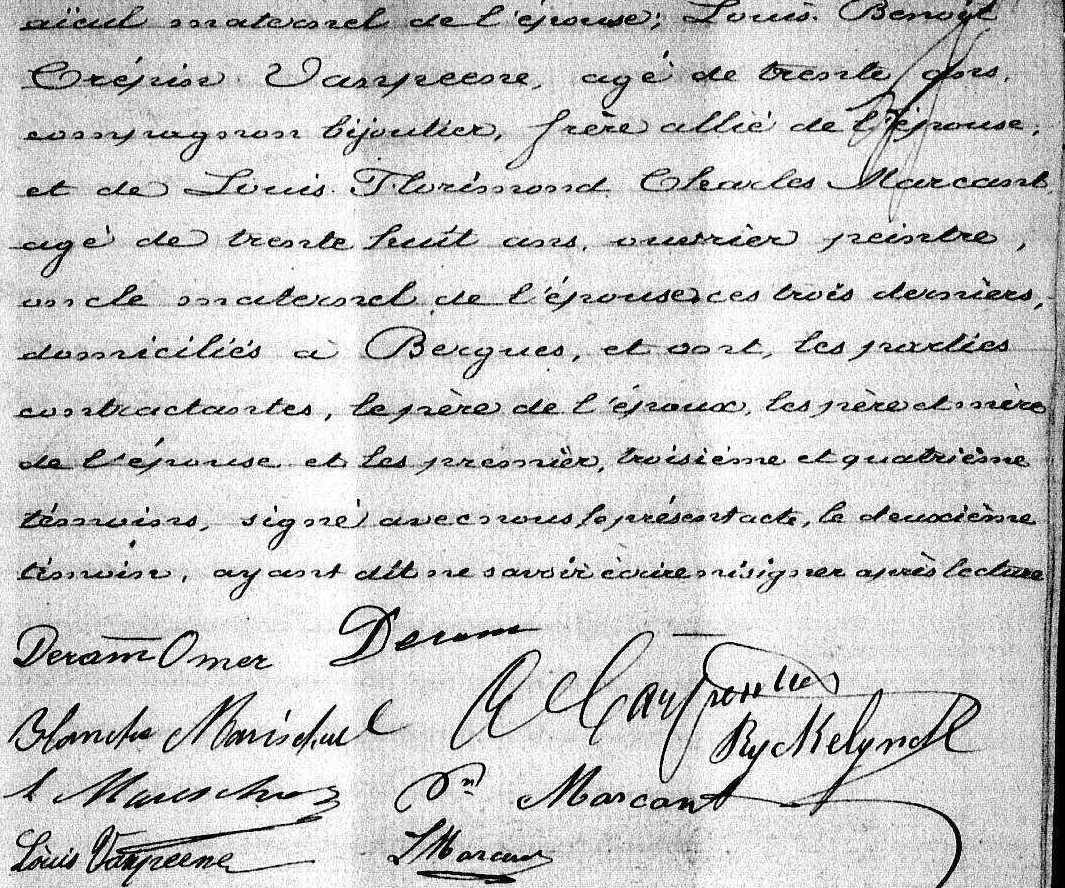 aïeul maternel de l'épouse; Louis Benoît
Crépin Vanpeene, agé de trente ans,
compagnon bijoutier, frère allié de l'épouse,
et de Louis Florimond Charles Marcant
agé de trente huit ans, ouvrier peintre,
oncle maternel de l'épouse ces trois derniers,
domiciliés à Bergues, et ont, les parties
contractantes, le père de l'époux, les père et mère
de l'épouse et les premier, troisième et quatrième
témoins, signé avec nous le présent acte, le deuxième
témoin, ayant dit ne savoir écrire ni signer après lecture
Deram Omer Deram
Blanche Marischal
Ryckelynck
Marcant
Louis Vanpeene L Marcant